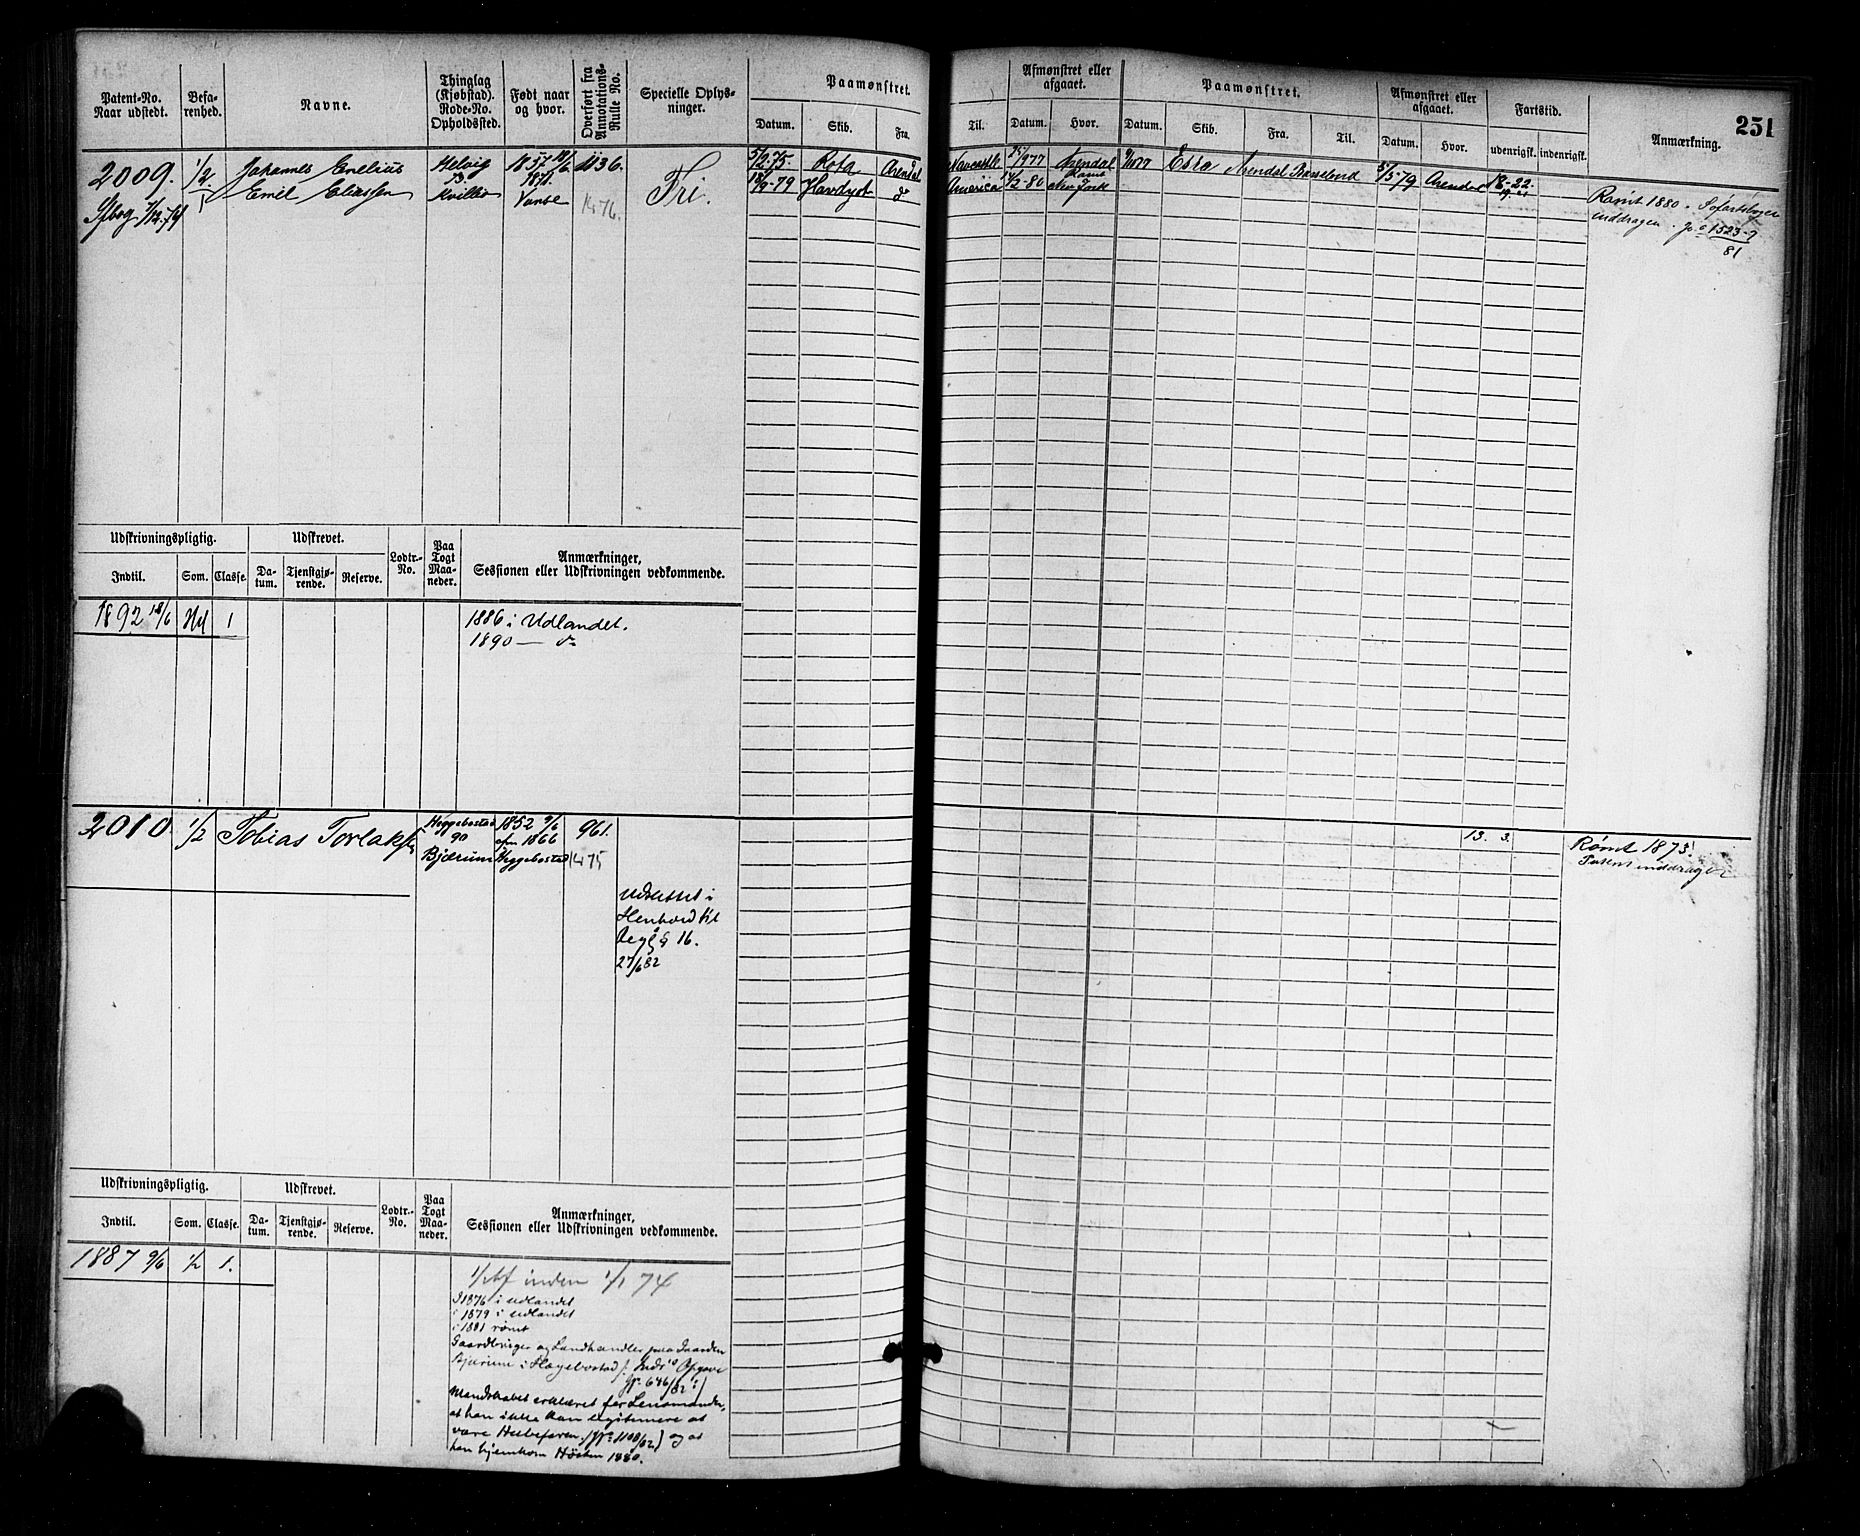 251
Patent-No. Naar udstedt.
Befarenhed.
Navne.
Thinglag (Kjøbstad). Rode-No. Opholdssted.
Født naar og hvor.
Overført fra Annotations-Rulle No.
Specielle Oplysninger.
Paamønstret.
Datum. Skib. Fra. Til.
Afmønstret eller afgaaet.
Datum. Hvor.
Paamønstret.
Datum. Skib. Fra. Til.
Afmønstret eller afgaaet.
Datum. Hvor.
Fartstid.
udenrigsk. indenrigsk.
Anmærkning.
2009. 1/2 Johannes Emelius Helvig 1857 18/6 1136. Fri. 5/2-75 Rota Arendal
Emil Eliassen 73 1871. 18/9-79 America 11/2-80 New York
Kvillio Vanse 1476.
Arendal 9/10 77 Arendal 5/5-79 Arendal 18-22.
Rømt 1880.
inddragen. 1523-9
81
Udskrivningspligtig. Udskrevet. Lodtr.-No. Paa Togt Maaneder. Anmærkninger, Sessionen eller Udskrivningen vedkommende.
Indtil. Som. Classe. Datum. Tjenstgjørende. Reserve.
1892 18/6 Hel 1 1886 i Udlandet.
1890 — do
2010 1/2 Tobias Torlaksen Heggebostad 1852 9/6 961. 13. 3. Rømt 1875.
90 1866
Bjærum Heggebostad 1475
inddragen
Udsluttet i
Henhold til
Regl § 16.
27/6 82
Udskrivningspligtig. Udskrevet. Lodtr.-No. Paa Togt Maaneder. Anmærkninger, Sessionen eller Udskrivningen vedkommende.
Indtil. Som. Classe. Datum. Tjenstgjørende. Reserve.
1887 9/6 1/2 1. inden 1/1 74
I 1876 i udlandet
i 1879 i udlandet
i 1881 rømt
Gaardbruger og Landhandler paa Gaarden
Bjærum i Hægebostad f. Ind. Opgave
Jp. 646/82
Mandskabet erklæret for Lensmanden,
at han ikke kan legitimere at
være Helbefaren. (Jp. 1108/82) og at
han hjemkom Høsten 1880.